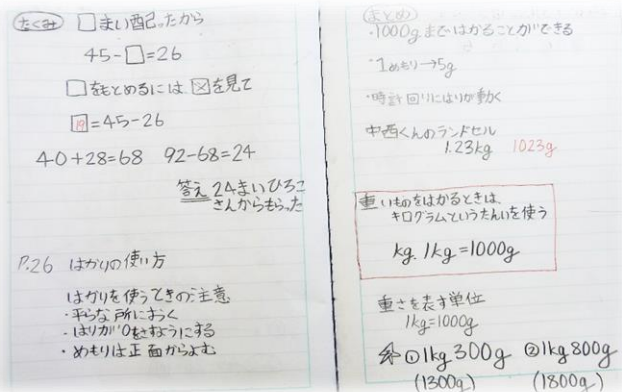 たくみ □まい配ったから
45-□=26
□をもとめるには、図を見て
19=45-26
40+28=68 92-68=24
答え 24まいひろこ
さんからもらった
P.26 はかりの使い方
はかりを使うときの注意
・平らな所におく
・はりが0をさすようにする
・めもりは正面からよむ
まとめ
・1000gまではかることができる
・1めもり→5g
・時計回りにはりが動く
中西くんのランドセル
1.23kg 1023g
重いものをはかるときは、
キログラムというたんいを使う
kg. 1kg=1000g
重さを表す単位
1kg=1000g
①1kg300g ②1kg800g
(1300g) (1800g)